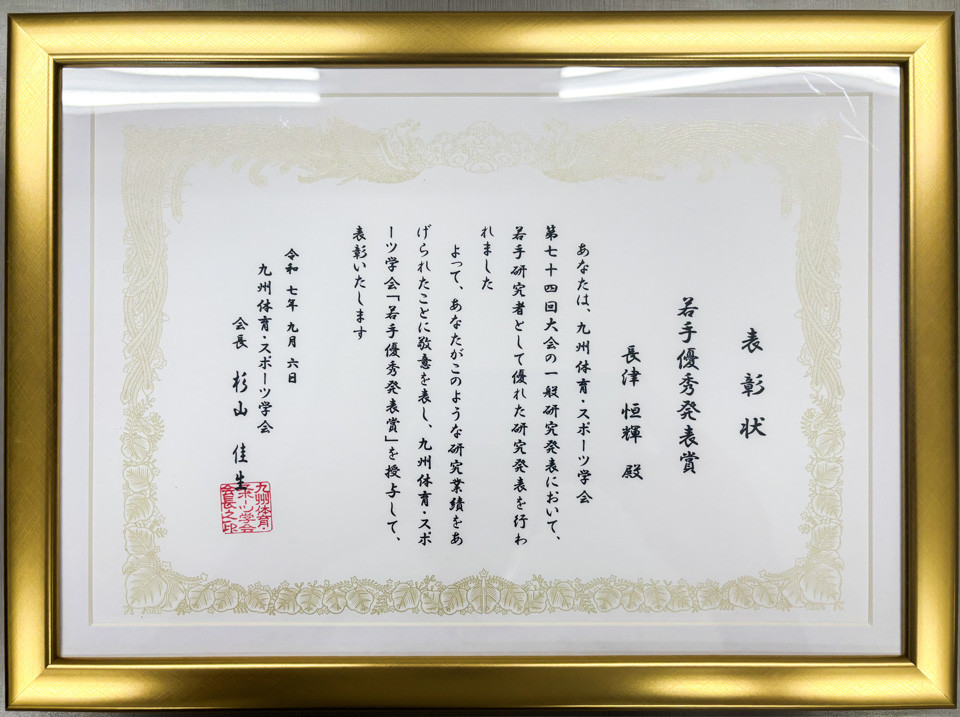 表彰状
若手優秀発表賞
長津 恒輝 殿
あなたは、九州体育・スポーツ学会
第七十四回大会の一般研究発表において、
若手研究者として優れた研究発表を行わ
れました
よって、あなたがこのような研究業績をあ
げられたことに敬意を表し、九州体育・スポ
ーツ学会「若手優秀発表賞」を授与して、
表彰いたします
令和七年九月六日
九州体育・スポーツ学会
会長 杉山 佳生
九州体育・
スポーツ学会
会長之印